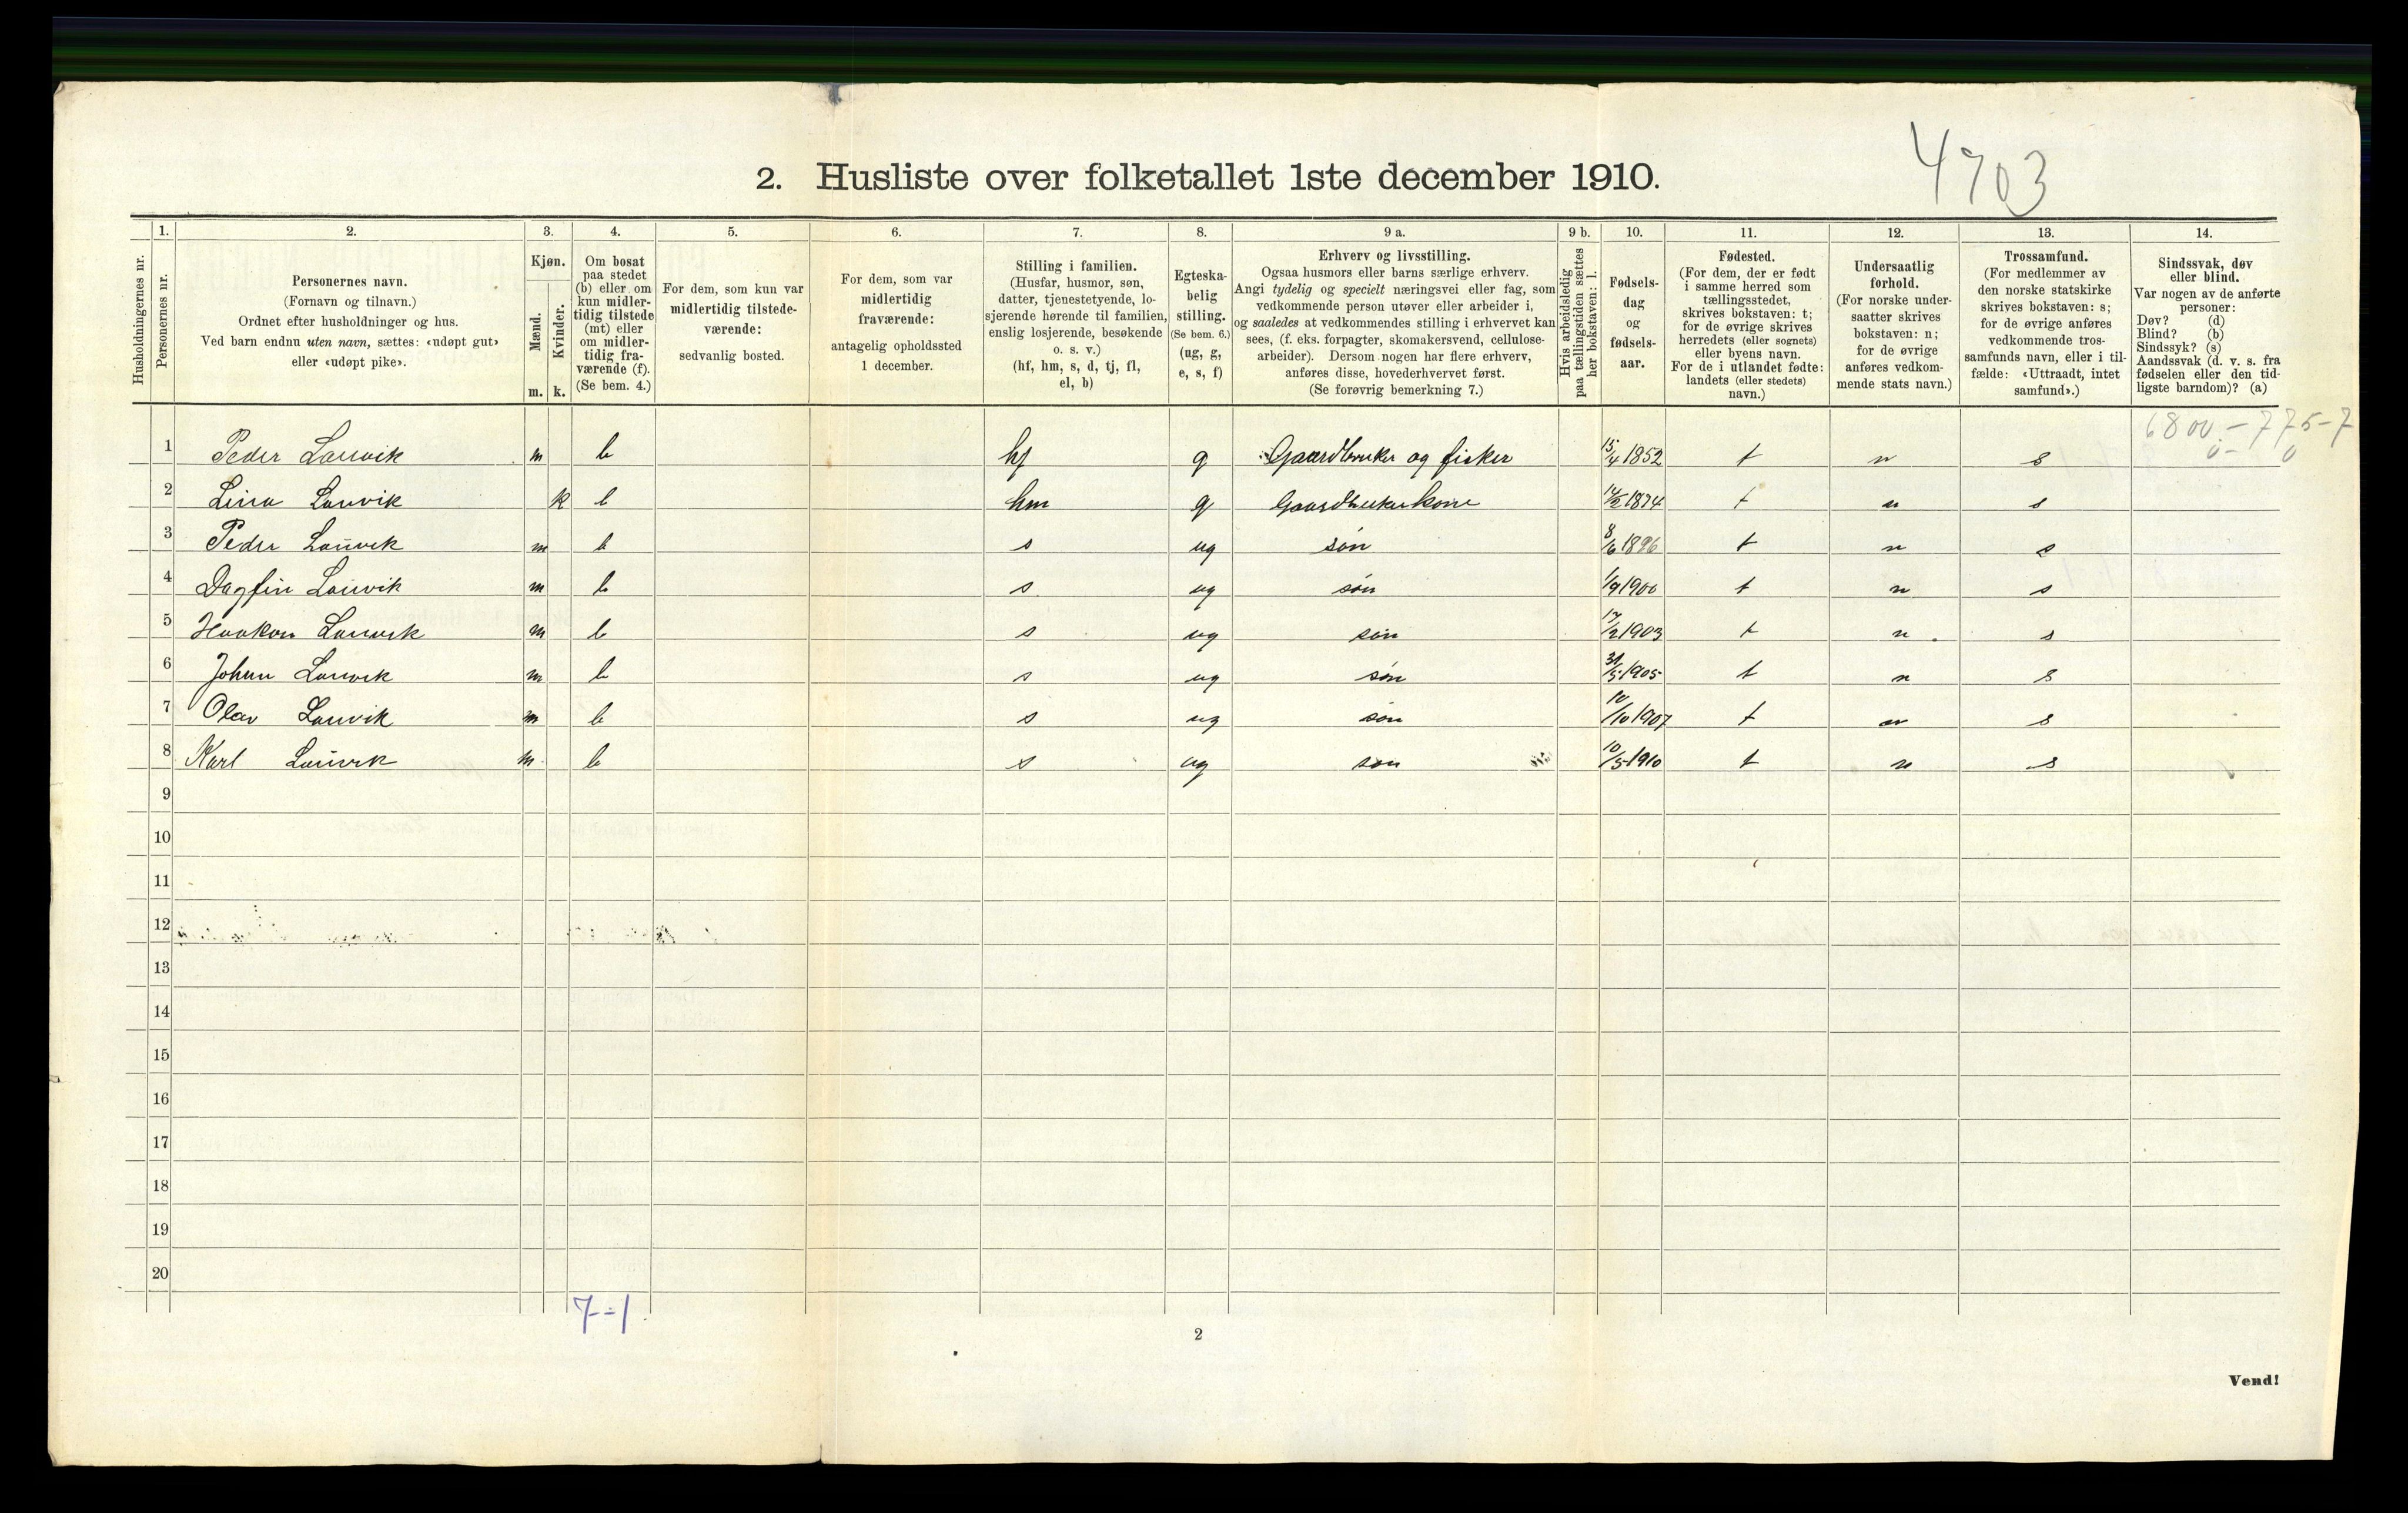 4703
2. Husliste over folketallet 1ste december 1910.
Husholdningernes nr.
1.
Personernes nr.
2.
Personernes navn.
(Fornavn og tilnavn.)
Ordnet efter husholdninger og hus.
Ved barn endnu uten navn, sættes: «udøpt gut»
eller «udøpt pike».
3.
Kjøn.
Mænd.
Kvinder.
m. k.
4.
Om bosat
paa stedet
(b) eller om
kun midler-
tidig tilstede
(mt) eller
om midler-
tidig fra-
værende (f).
(Se bem. 4.)
5.
For dem, som kun var
midlertidig tilstede-
værende:
sedvanlig bosted.
6.
For dem, som var
midlertidig
fraværende:
antagelig opholdssted
1 december.
7.
Stilling i familien.
(Husfar, husmor, søn,
datter, tjenestetyende, lo-
sjerende hørende til familien,
enslig losjerende, besøkende
o. s. v.)
(hf, hm, s, d, tj, fl,
el, b)
8.
Egteska-
belig
stilling.
(Se bem. 6.)
(ug, g,
e, s, f)
9 a.
Erhverv og livsstilling.
Ogsaa husmors eller barns særlige erhverv.
Angi tydelig og specielt næringsvei eller fag, som
vedkommende person utøver eller arbeider i,
og saaledes at vedkommendes stilling i erhvervet kan
sees, (f. eks. forpagter, skomakersvend, cellulose-
arbeider). Dersom nogen har flere erhverv,
anføres disse, hovederhvervet først.
(Se forøvrig bemerkning 7.)
9 b.
Hvis arbeidsledig
paa tællingstiden sættes
her bokstaven: l.
10.
Fødsels-
dag
og
fødsels-
aar.
11.
Fødested.
(For dem, der er født
i samme herred som
tællingsstedet,
skrives bokstaven: t;
for de øvrige skrives
herredets (eller sognets)
eller byens navn.
For de i utlandet fødte:
landets (eller stedets)
navn.)
12.
Undersaatlig
forhold.
(For norske under-
saatter skrives
bokstaven: n;
for de øvrige
anføres vedkom-
mende stats navn.)
13.
Trossamfund.
(For medlemmer av
den norske statskirke
skrives bokstaven: s;
for de øvrige anføres
vedkommende tros-
samfunds navn, eller i til-
fælde: «Uttraadt, intet
samfund».)
14.
Sindssvak, døv
eller blind.
Var nogen av de anførte
personer:
Døv? (d)
Blind? (b)
Sindssyk? (s)
Aandssvak (d. v. s. fra
fødselen eller den tid-
ligste barndom)? (a)
6800.-775-7
0- 0
1 Peder Lauvik m b hf g Gaardbruker og fisker 15/4 1852 t n s
2 Lina Lauvik k b hm g Gaardbrukerkone 14/2 1874 t n s
3 Peder Lauvik m b s ug søn 8/6 1896 t n s
4 Dagfin Lauvik m b s ug søn 1/9 1900 t n s
5 Haakon Lauvik m b s ug søn 17/2 1903 t n s
6 Johan Lauvik m b s ug søn 31/5 1905 t n s
7 Olav Lauvik m b s ug søn 10/10 1907 t n s
8 Karl Lauvik m b s ug søn 10/5 1910 t n s
9
10
11
12
13
14
15
16
17
18
19
20
7-1
2
Vend!